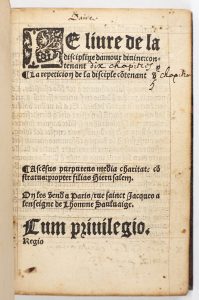 Baire
LE liure de la
discipline damour diuine: con-
tenant dix chapitres
¶ La repeticiõ de la disciple cõtenant 9 chapitres
¶ Ascẽsus purpureus media charitate cõ
stratus: propter filias Hierusalem.
On les vend a Paris / rue sainct Jacques a
lenseigne de Lhomme Sauluaige.
Cum priuilegio.
Regio